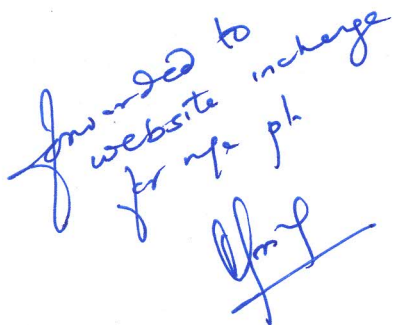 forwarded to
website incharge
for n/a pl